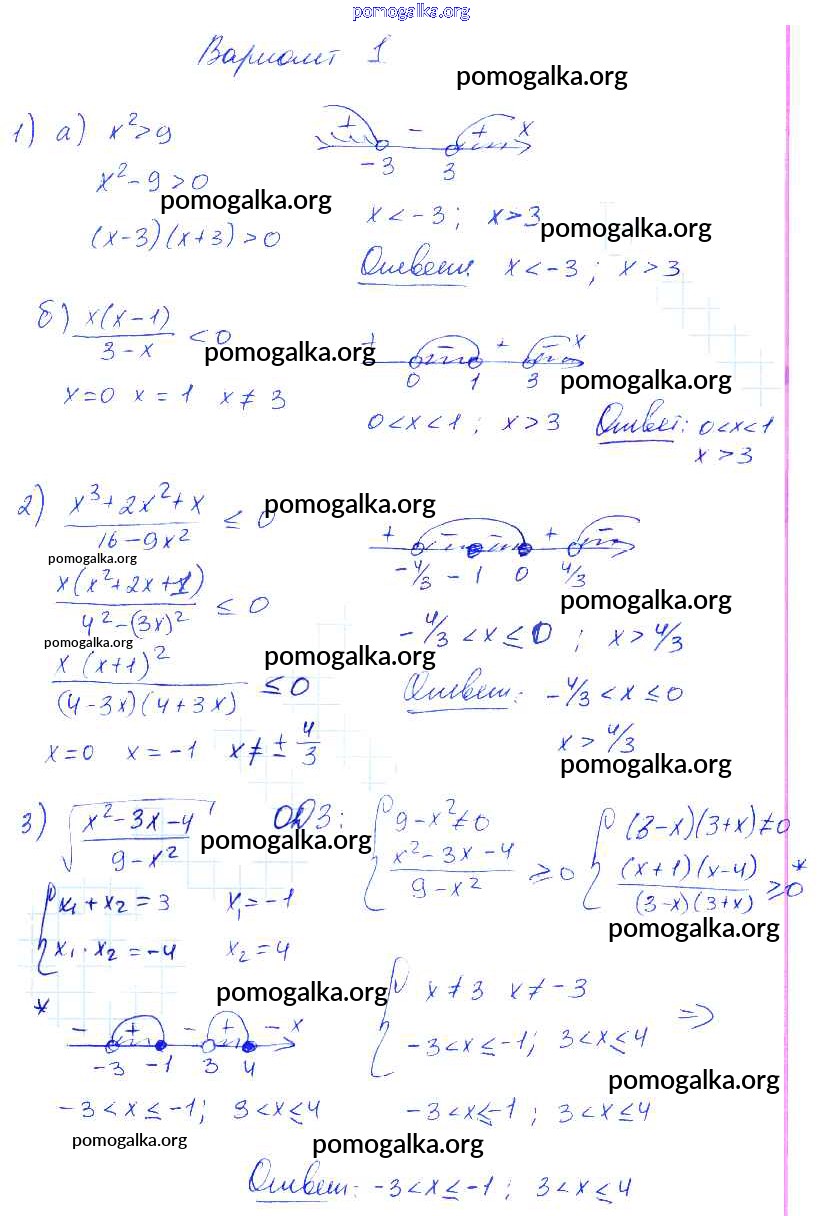 pomogalka.org
Вариант 1
pomogalka.org
1) а) x² > 9
+ - + x
-3 3
x² - 9 > 0
pomogalka.org
(x-3)(x+3) > 0
x < -3 ; x > 3
pomogalka.org
Ответ: x < -3 ; x > 3
б) x(x-1)/(3-x) < 0
pomogalka.org
+ - + - x
0 1 3
pomogalka.org
x=0 x=1 x≠3
0<x<1 ; x>3
Ответ: 0<x<1
x>3
2) (x³+2x²+x)/(16-9x²) ≤ 0
pomogalka.org
+ - - + -
-4/3 -1 0 4/3
pomogalka.org
x(x²+2x+1)/(4²-(3x)²) ≤ 0
pomogalka.org
-4/3 < x ≤ 0 ; x > 4/3
pomogalka.org
x(x+1)²/((4-3x)(4+3x)) ≤ 0
pomogalka.org
Ответ: -4/3 < x ≤ 0
x > 4/3
pomogalka.org
x=0 x=-1 x≠±4/3
3) √((x²-3x-4)/(9-x²))
pomogalka.org
ОДЗ: { 9-x²≠0
(x²-3x-4)/(9-x²) ≥ 0
{ (3-x)(3+x)≠0
(x+1)(x-4)/((3-x)(3+x)) ≥ 0 *
pomogalka.org
{ x₁+x₂=3 x₁=-1
x₁·x₂=-4 x₂=4
pomogalka.org
{ x≠3 x≠-3
-3<x≤-1; 3<x≤4
=>
pomogalka.org
*
- + - + - x
-3 -1 3 4
-3<x≤-1; 3<x≤4
-3<x≤-1 ; 3<x≤4
pomogalka.org
pomogalka.org
Ответ: -3<x≤-1 ; 3<x≤4